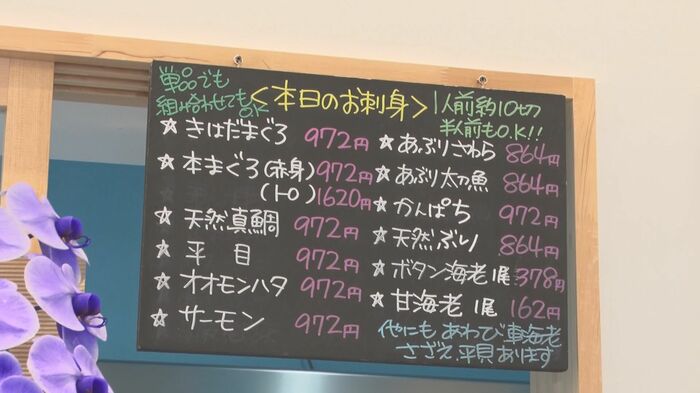 単品でも
組み合わせても
OK
<本日のお刺身>
1人前約10切
半人前もO.K!!
☆きはだまぐろ 972円
☆本まぐろ(赤身)972円
(トロ)1620円
☆天然真鯛 972円
☆平目 972円
☆オオモンハタ 972円
☆サーモン 972円
☆あぶりさわら 864円
☆あぶり太刀魚 864円
☆かんぱち 972円
☆天然ぶり 864円
☆ボタン海老1尾 378円
☆甘海老1尾 162円
他にもあわび車海老
さざえ、平貝あります